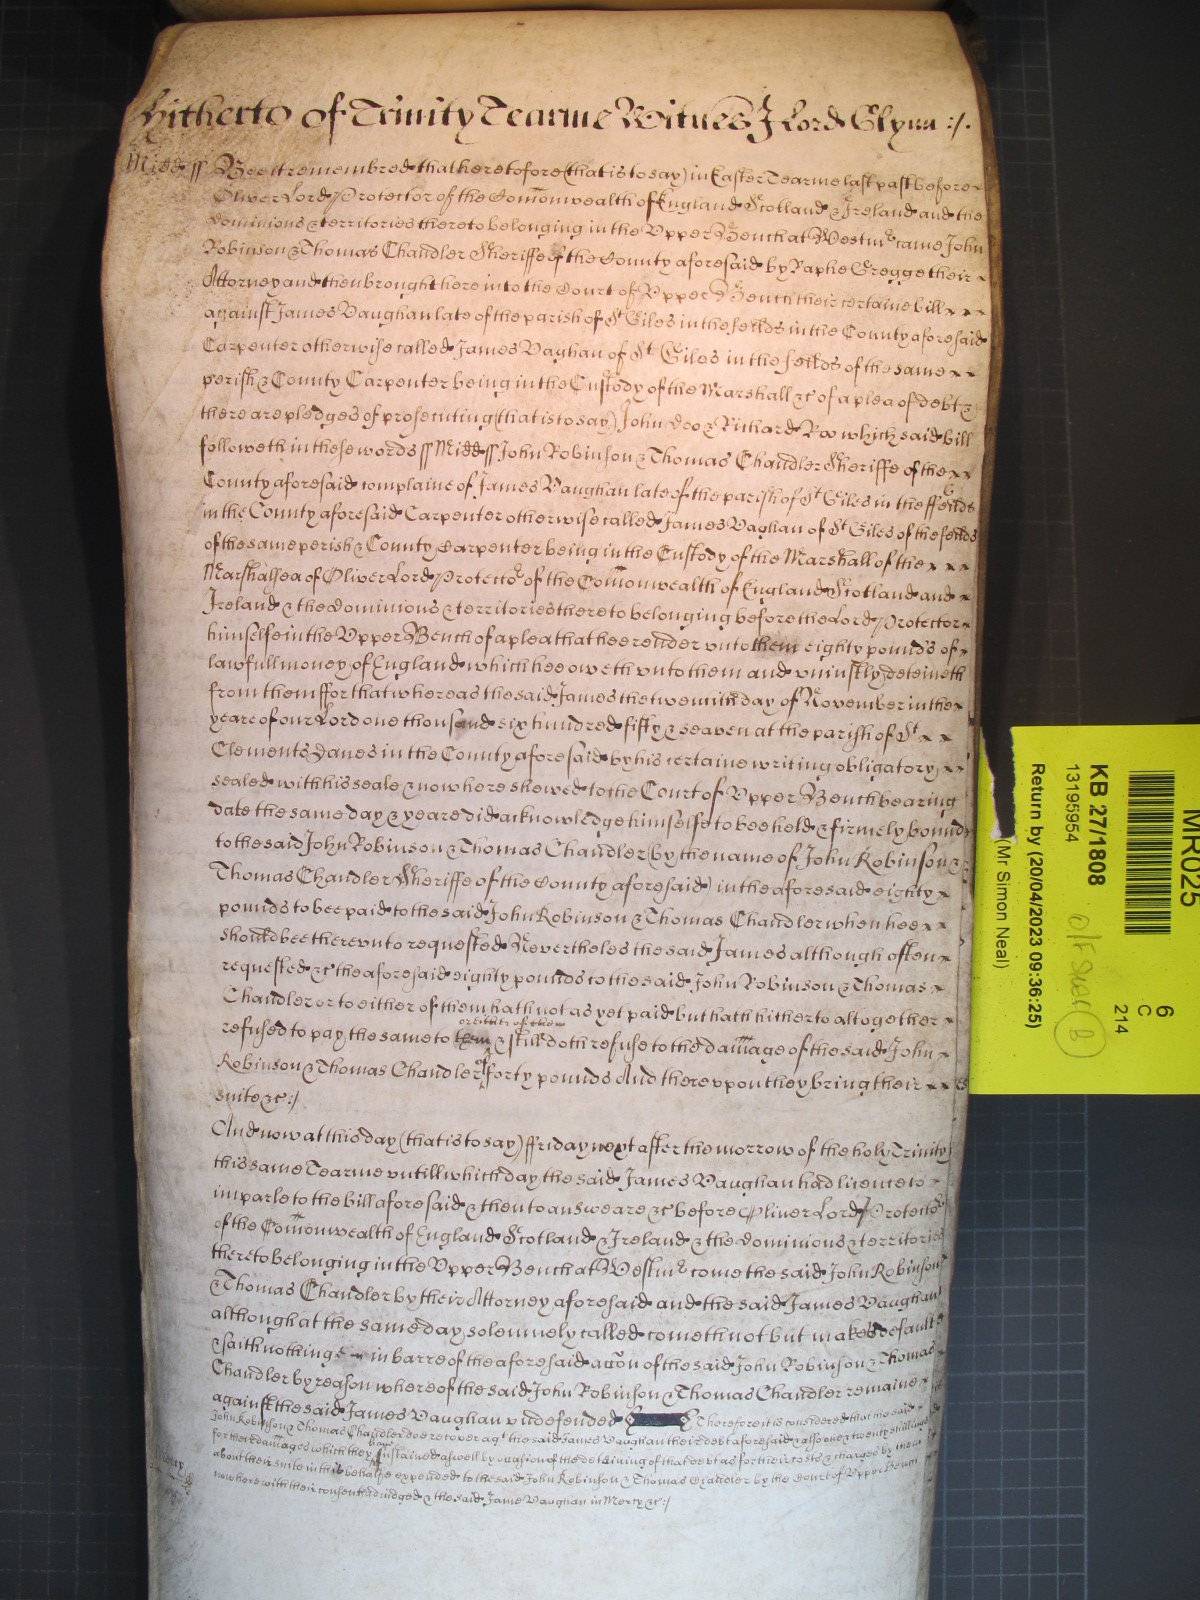 Hitherto of Trinity Tearme Witnes J Lord Glynn :/.
Midd ss Bee it remembred that heretofore (that is to say) in Easter Tearme last past before
Oliver Lord Protector of the Com̄onwealth of England Scotland & Ireland and the
dominions & territories thereto belonging in the Vpper Bench at Westmr came John
Robinson & Thomas Chandler Sheriffe of the County aforesaid by Raphe Gregge their
Attorney and then brought here into the Court of Vpper Bench their certaine bill
against James Vaughan late of the parish of St Giles in the feilds in the County aforesaid
Carpenter otherwise called James Vaghan of St Giles in the feilds of the same
perish & County Carpenter being in the Custody of the Marshall &c of a plea of debt &
there are pledges of prosecuting (that is to say) John Doo & Richard Roo which said bill
followeth in these words ss Midd ss John Robinson & Thomas Chandler Sheriffe of the
County aforesaid complaine of James Vaughan late of the parish of St Giles in the ffeilds
in the County aforesaid Carpenter otherwise called James Vaghan of St Giles of the feilds
of the same perish & County Carpenter being in the Custody of the Marshall of the
Marshalsea of Oliver Lord Protector of the Com̄onwealth of England Scotland and
Ireland & the dominions & territories thereto belonging before the Lord Protector
himselfe in the Vpper Bench of a plea that hee render vnto them eighty pounds of
lawfull money of England which hee oweth vnto them and vniustly deteineth
from them ffor that whereas the said James the twentith day of November in the
yeare of our Lord one thousand six hundred fifty & seaven at the parish of St
Clements Danes in the County aforesaid by his certaine writing obligatory
sealed with his seale & now here shewed to the Court of Vpper Bench bearing
date the same day & yeare did acknowledge himselfe to bee held & firmely bound
to the said John Robinson & Thomas Chandler (by the name of John Robinson &
Thomas Chandler Sheriffe of the County aforesaid) in the aforesaid eighty
pounds to bee paid to the said John Robinson & Thomas Chandler when hee
should bee therevnto requested Nevertheles the said James although often
requested &c the aforesaid eighty pounds to the said John Robinson & Thomas
Chandler or to either of them hath not as yet paid but hath hitherto altogether
or either of them
refused to pay the same to them & still doth refuse to the damage of the said John
Robinson & Thomas Chandler of forty pounds And therevpon they bring their
suite &c :/
And now at this day (that is to say) ffriday next after the morrow of the holy Trinity
this same Tearme vntill which day the said James Vaughan had licence to
imparle to the bill aforesaid & then to answeare &c before Oliver Lord Protector
of the Com̄onwealth of England Scotland & Ireland & the dominions & territories
thereto belonging in the Vpper Bench at Westmr come the said John Robinson
& Thomas Chandler by their Attorney aforesaid and the said James Vaughan
although at the same day solemnely called cometh not but makes default
& saith nothinge in barre of the aforesaid acc̄on of the said John Robinson & Thomas
Chandler by reason whereof the said John Robinson & Thomas Chandler remaine
against the said James Vaughan vndefended Therefore it is considered that the said
John Robinson & Thomas Chandler doe recover agt the said James Vaughan their debt aforesaid & alsoe one & twenty shillings
for their damages which they have sustained aswell by occasion of the deteining of that debt as for their costs & charges by them
about their suite in this behalfe expended to the said John Robinson & Thomas Chandler by the Court of Vpper Bench
now here with their consent adiudged & the said Jame Vaughan in Mercy &c :/
Mercy
MR025
6
C
214
KB 27/1808
13195954
Return by (20/04/2023 09:36:25)
(Mr Simon Neal)